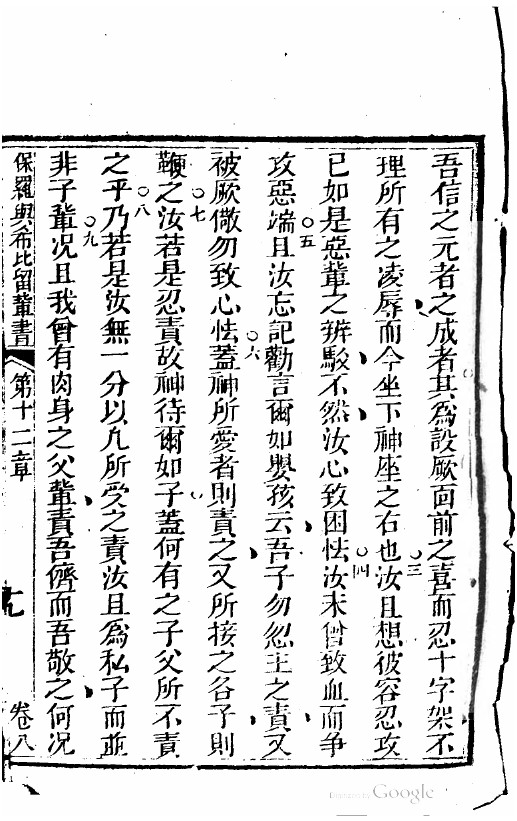 吾信之元者之成者其為設厥面前之喜而忍十字架不
三
理所有之凌辱而今坐下神座之右也汝且想彼容忍攻
四
已如是惡輩之辨駁不然汝心致困怯汝未曾致血而爭
五
攻惡端且汝忘記勸言爾如嬰孩云吾子勿忽主之責又
六
被厥儆勿致心怯蓋神所愛者則責之又所接之各子則
七
鞭之汝若是忍責故神待爾如子蓋何有之子父所不責
八
之乎乃若是汝無一分以凢所受之責汝且為私子而並
九
非子輩况且我曾有肉身之父輩責吾儕而吾敬之何况
保羅與希比留輩書 第十二章 十九 卷八
Digitized by Google